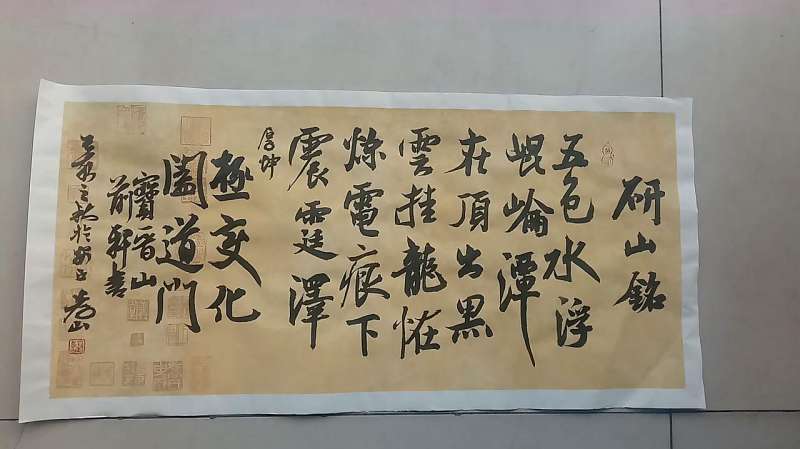 研山銘
五色水浮
崐崘潭
在頂出黑
雲挂龍恠
爍電痕下
震霆澤
厚坤
極变化
闔道門
寶晋山
前軒書
之秋於